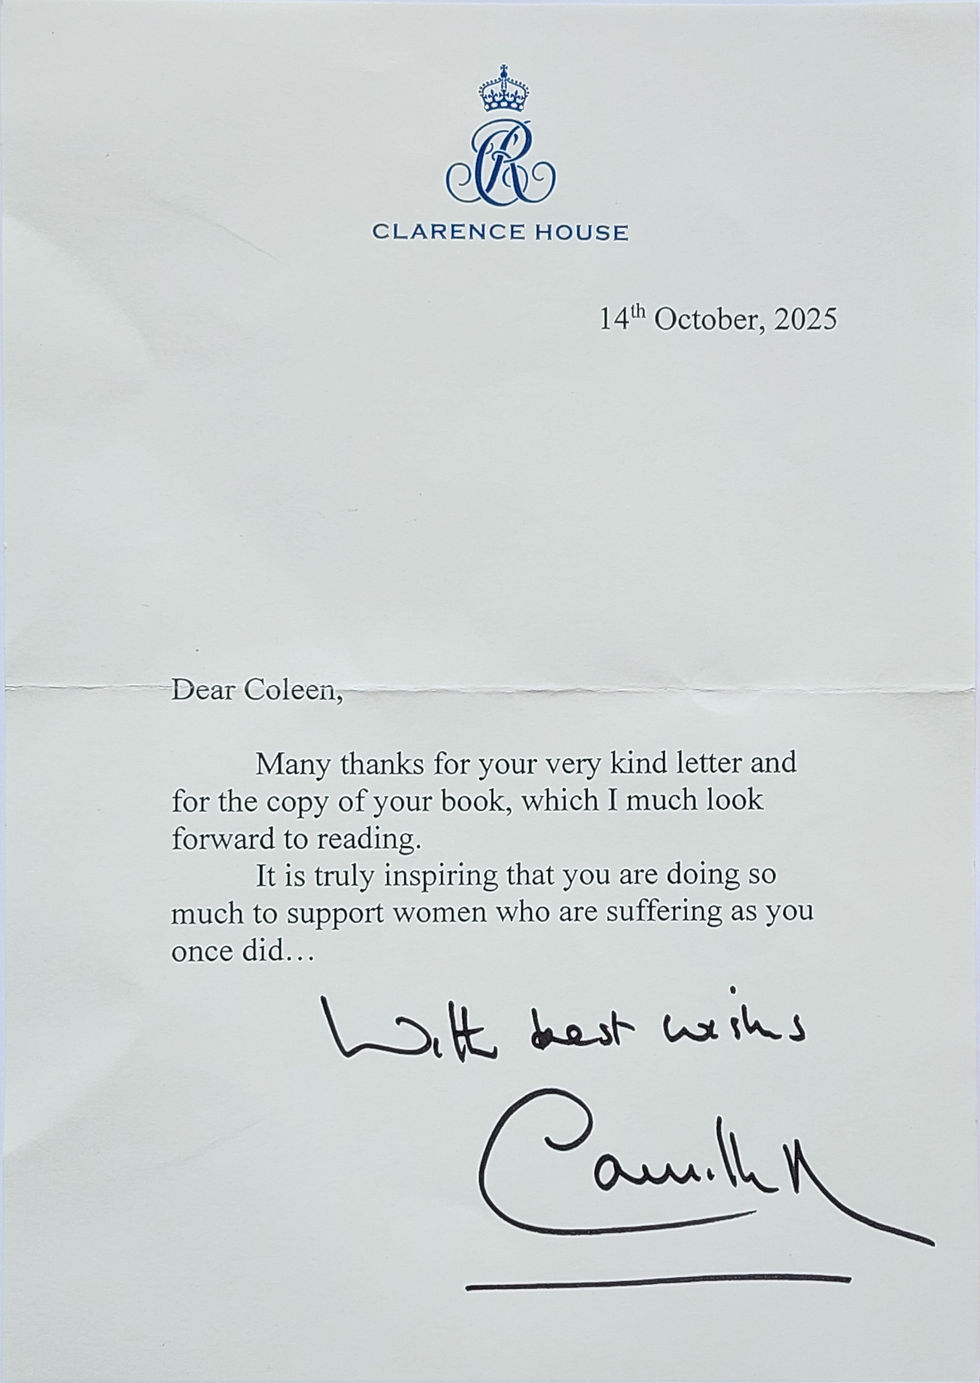 CR
CLARENCE HOUSE
14th October, 2025
Dear Coleen,
Many thanks for your very kind letter and
for the copy of your book, which I much look
forward to reading.
It is truly inspiring that you are doing so
much to support women who are suffering as you
once did…
With best wishes
Camilla R